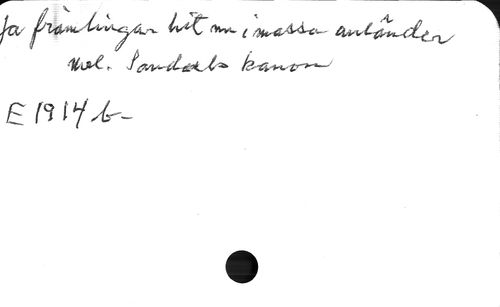 Ja främlingar hit nu i massa anländer
mel. Sandels kanon
E 1914 b-